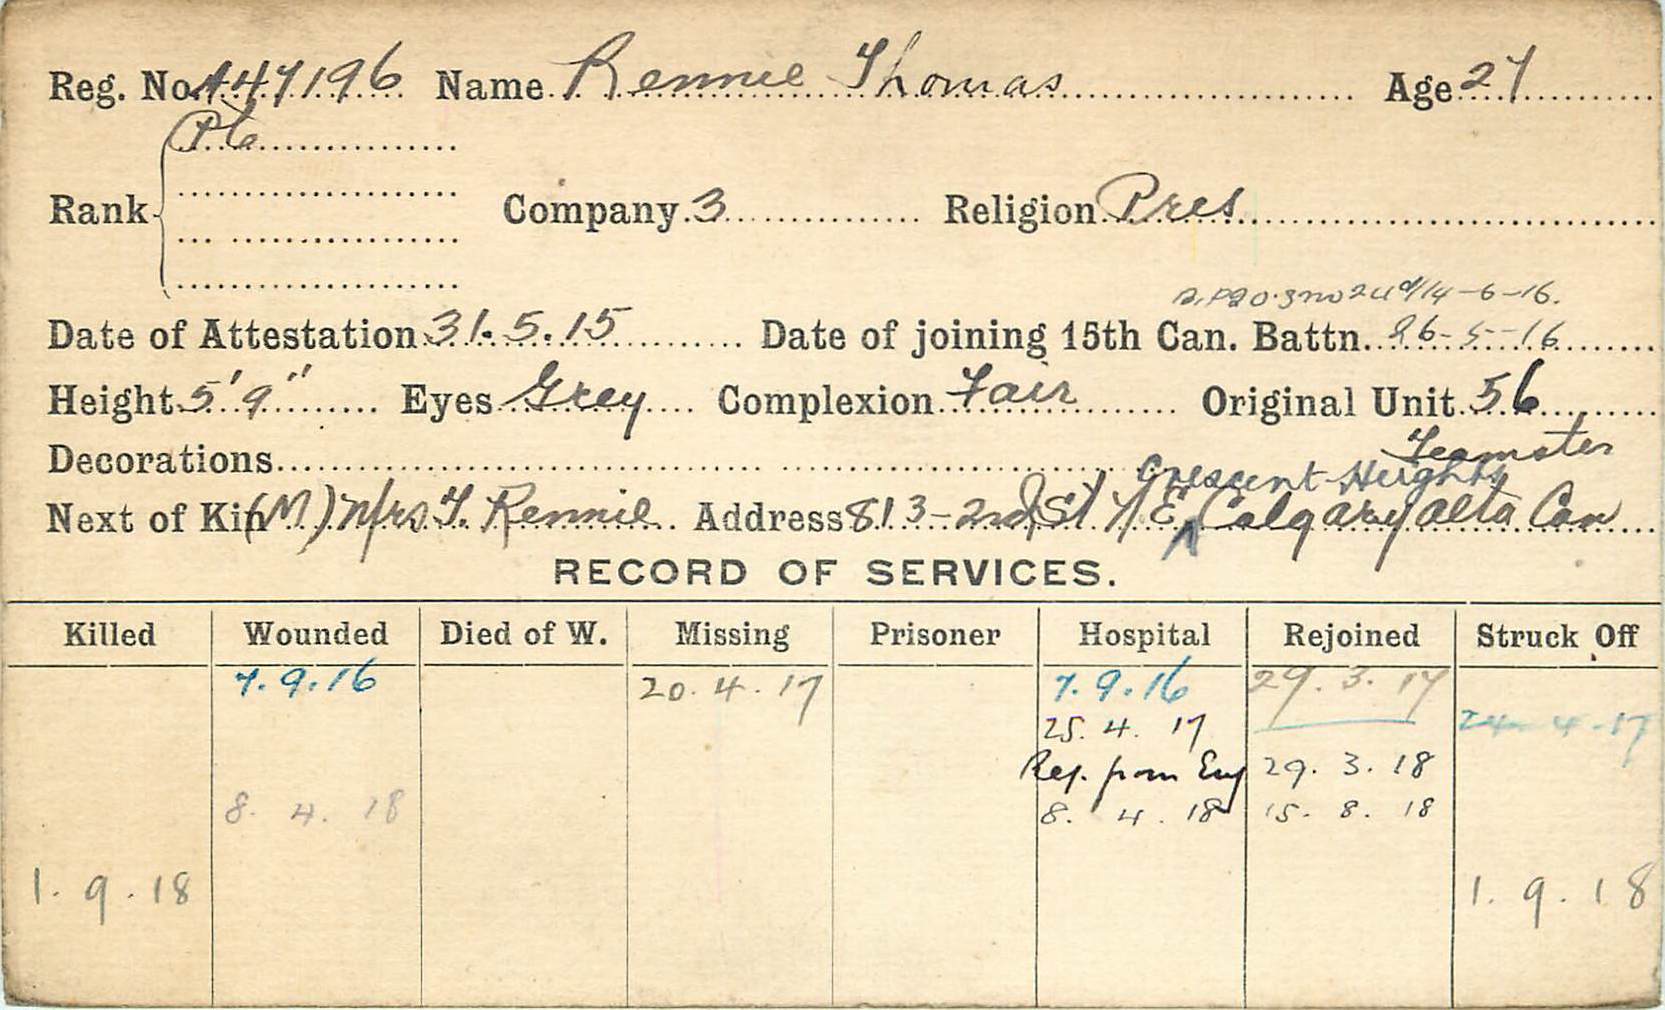 Reg. No. 447196 Name Rennie Thomas Age 27
Pte
Rank Company 3 Religion Pres
14-6-16.
Date of Attestation 31.5.15 Date of joining 15th Can. Battn. 26-5-16
Height 5'9" Eyes Grey Complexion Fair Original Unit 56
Teamster
Decorations
Crescent Heights
Next of Kin (M) Mrs T. Rennie Address 813-2nd St N E, Calgary Alta Can
RECORD OF SERVICES.
Killed Wounded Died of W. Missing Prisoner Hospital Rejoined Struck Off
7.9.16 20.4.17 7.9.16 29.3.17
25.4.17 24-4-17
Rej. from Eng 29.3.18
8.4.18 8.4.18 15.8.18
1.9.18 1.9.18